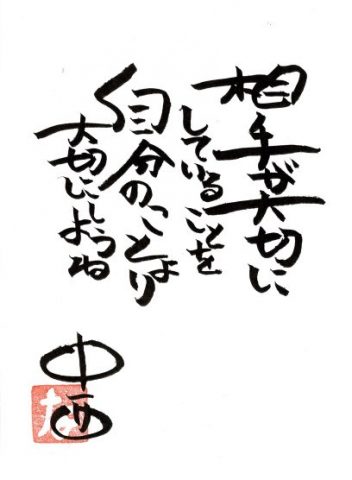 相手が大切に
していることを
自分のことより
大切にしようね
中西
な